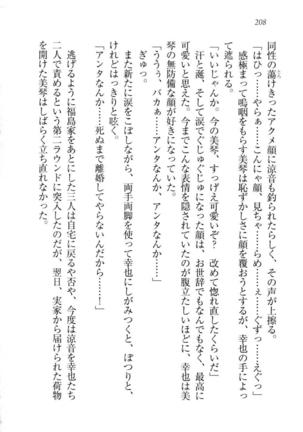 208
同性の蕩けきったアクメ顔に涼音も釣られたらしく、その声が上擦る。
「はひっ……やらぁ……こんにゃ顔、見ちゃ……らめ……ぇ……ぐずっ……えぐっ」
感極まって嗚咽をもらす美琴は恥ずかしさに顔を覆おうとするが、幸也の手によっ
て遮られる。
「いいじゃんか。今の美琴、すっげえ可愛いぞ? 改めて惚れ直したくらいだ」
汗と涎、そして涙でぐじゅぐじゅになった顔は、お世辞でもなんでもなく、最高に
可愛いと思えた。今までこんな表情を隠されていたのが腹立たしいほどに、幸也は美
琴の無防備な顔が好きになっていた。
「ううぅ、バカぁ……アンタなんか、アンタなんか」
ぎゅっ。
また新たに涙をこぼしながら、両手両脚を使って幸也にしがみつくと、ぽつりと、
けれどはっきりと呟く。
「アンタなんか……死ぬまで離婚してやらないんだから……!」
逃げるように福島家をあとにした三人は自宅に戻るや否や、今度は涼音を幸也たち
二人で責めるという第二ラウンドに突入したのだが、翌日、実家から届けられた荷物
を開けた美琴はしばらく立ち直れなかった。